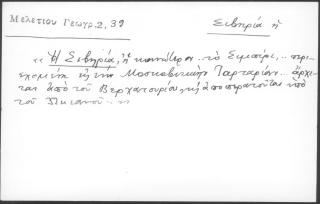 Μελετίου Γεωγρ. 2, 39
Σιβηρία ἡ
« Ἡ Σιβηρία, ἢ κοινότερον.. τὸ Σιμπίρι,.. περι-
εχομένη εἰς τὴν Μοσκοβικὴν Ταρταρίαν.. ἄρχε-
ται ἀπὸ τοῦ Βερχατουρίου, κὶ ἀποπερατοῦται ὑπὸ
τοῦ Ὠκεανοῦ.. »